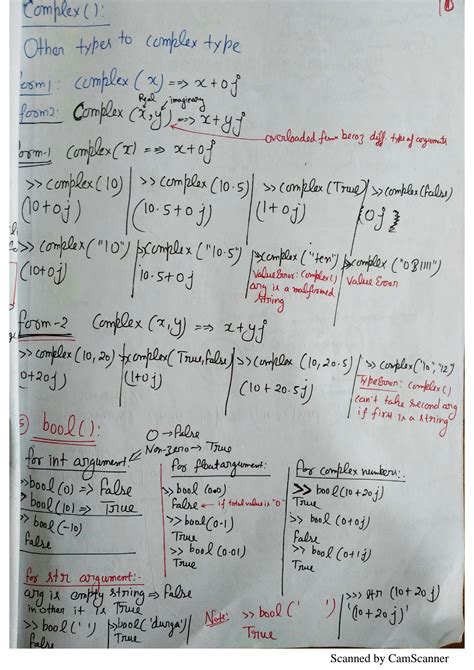 Complex():
Other types to complex type
form1: complex(x) => x+0j
Real imaginary
form2: Complex(x,y) => x+yj
overloaded fun becoz diff. type of arguments
form-1 complex(x) => x+0j
>>complex(10) >> complex(10.5) >> complex(True) >>complex(False)
(10+0j) (10.5+0j) (1+0j) (0j)
>>complex("10") >>complex("10.5") >>complex("ten") >>complex("0B1111")
(10+0j) 10.5+0j ValueError: complex() ValueError
arg is a malformed
string
form-2 Complex(x,y) => x+yj
>>complex(10,20) >>complex(True,False) >>complex(10,20.5) >>complex("10","12")
(10+20j) (1+0j) (10+20.5j) TypeError: complex()
can't take second arg
if first is a string
5) bool():
0 → False
Non-zero → True
for int argument: for float argument: for complex numbers:-
>>bool(0) => False >> bool(0.0) >> bool(10+20j)
>>bool(10) => True False ← if total value is "0" True
>> bool(-10) >> bool(0.1) >> bool(0+0j)
False True False
>> bool(0.01) >> bool(0+1j)
True True
for str argument:-
arg is empty string → False >>> str (10+20j)
in other it is True '(10+20j)'
>>bool(' ') >>bool('durga') Note: >> bool(' ')
False True True
Scanned by CamScanner